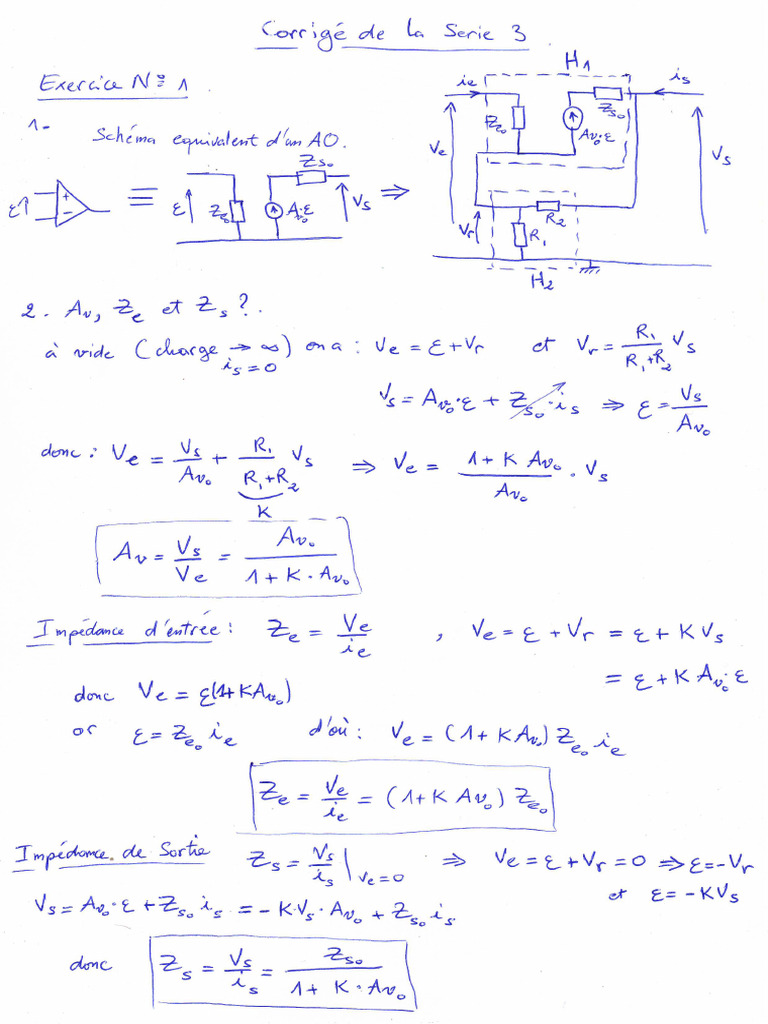 Corrigé de la Serie 3
Exercice N° 1
1-
Schéma equivalent d'un AO.
ε + - ≡ ε Z_{e0} A_{v0}·ε Z_{s0} V_s ⇒
H1
i_e i_s
Z_{e0} Z_{s0} A_{v0}·ε
V_e V_s
V_r R_1 R_2
H_2
2. A_v, Z_e et Z_s ?.
à vide (charge → ∞) on a : V_e = ε + V_r et V_r = \frac{R_1}{R_1+R_2} V_s
i_s = 0
V_s = A_{v0}·ε + Z_{s0}·i_s ⇒ ε = \frac{V_s}{A_{v0}}
donc : V_e = \frac{V_s}{A_{v0}} + \frac{R_1}{R_1+R_2} V_s ⇒ V_e = \frac{1 + K A_{v0}}{A_{v0}} · V_s
K
A_v = \frac{V_s}{V_e} = \frac{A_{v0}}{1 + K · A_{v0}}
Impédance d'entrée : Z_e = \frac{V_e}{i_e} , V_e = ε + V_r = ε + K V_s
= ε + K A_{v0}·ε
donc V_e = ε(1 + K A_{v0})
or ε = Z_{e0} i_e d'où : V_e = (1 + K A_{v0}) Z_{e0} i_e
Z_e = \frac{V_e}{i_e} = (1 + K A_{v0}) Z_{e0}
Impédance de Sortie Z_s = \frac{V_s}{i_s} |_{V_e=0} ⇒ V_e = ε + V_r = 0 ⇒ ε = -V_r
et ε = -K V_s
V_s = A_{v0}·ε + Z_{s0} i_s = -K·V_s·A_{v0} + Z_{s0} i_s
donc Z_s = \frac{V_s}{i_s} = \frac{Z_{s0}}{1 + K · A_{v0}}